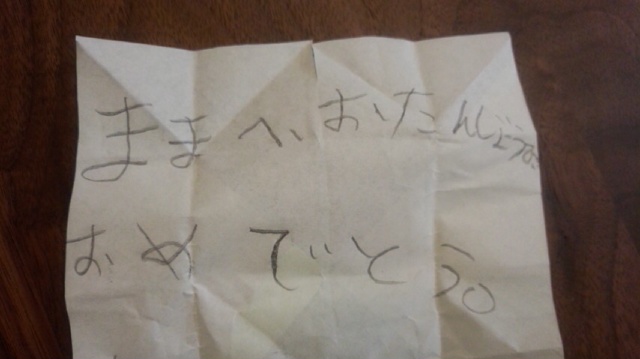 ままへ、おたんじょうび
おめでとう。